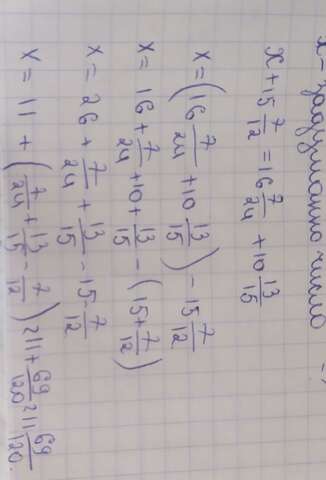 x - задуманно число
x + 15 7/12 = 16 7/24 + 10 13/15
x = (16 7/24 + 10 13/15) - 15 7/12
x = 16 + 7/24 + 10 + 13/15 - (15 + 7/12)
x = 26 + 7/24 + 13/15 - 15 7/12
x = 11 + (7/24 + 13/15 - 7/12) = 11 + 69/120 = 11 69/120.